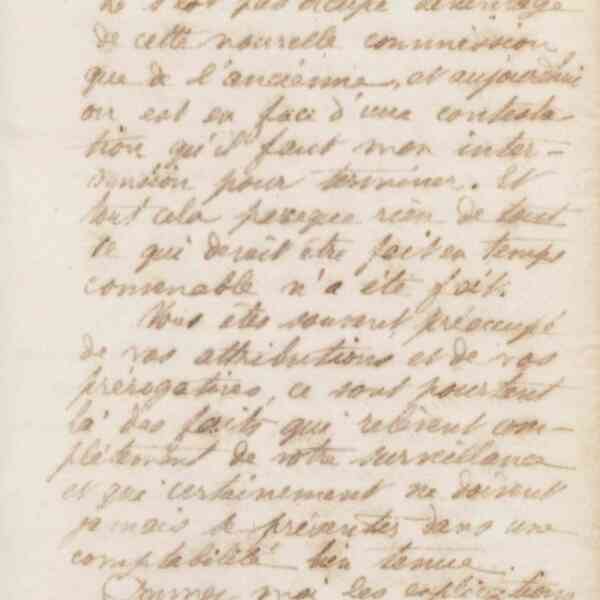 ne s'est pas occupé davantage
de cette nouvelle commission
que de l'ancienne, et aujourd'hui
on est en face d'une contesta-
tion qu'il faut mon inter-
vention pour terminer. Et
tout cela parceque rien de tout
ce qui devait être fait en temps
convenable n'a été fait.
Vous êtes souvent préoccupé
de vos attributions et de vos
prérogatives, ce sont pourtant
là des faits qui relèvent com-
plètement de votre surveillance
et qui certainement ne doivent
jamais se présenter dans une
comptabilité bien tenue.
Donnez moi des explications